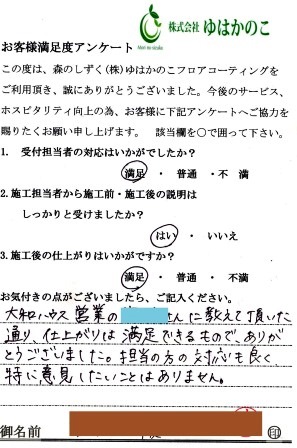 株式会社 ゆはかのこ
Mori no sizuku
お客様満足度アンケート
この度は、森のしずく(株)ゆはかのこフロアコーティングを
ご利用頂き、誠にありがとうございました。今後のサービス、
ホスピタリティ向上の為、お客様に下記アンケートへご協力を
賜りたくお願い申し上げます。 該当欄を〇で囲って下さい。
1. 受付担当者の対応はいかがでしたか?
満足 ・ 普通 ・ 不 満
2.施工担当者から施工前・施工後の説明は
しっかりと受けましたか?
はい ・ いいえ
3.施工後の仕上がりはいかがですか?
満足 ・ 普通 ・ 不 満
お気付きの点がございましたら、ご記入ください。
大和ハウス 営業の さんに教えて頂いた
通り、仕上がりは満足できるもので、ありが
とうございました。担当の方の対応も良く、
特に意見したいことはありません。
御名前 印